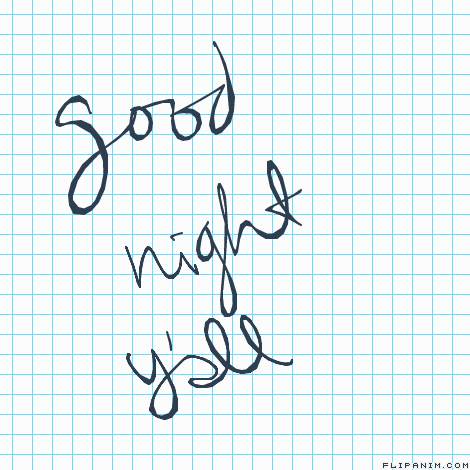 good
night
y'all
FLIPANIM.COM